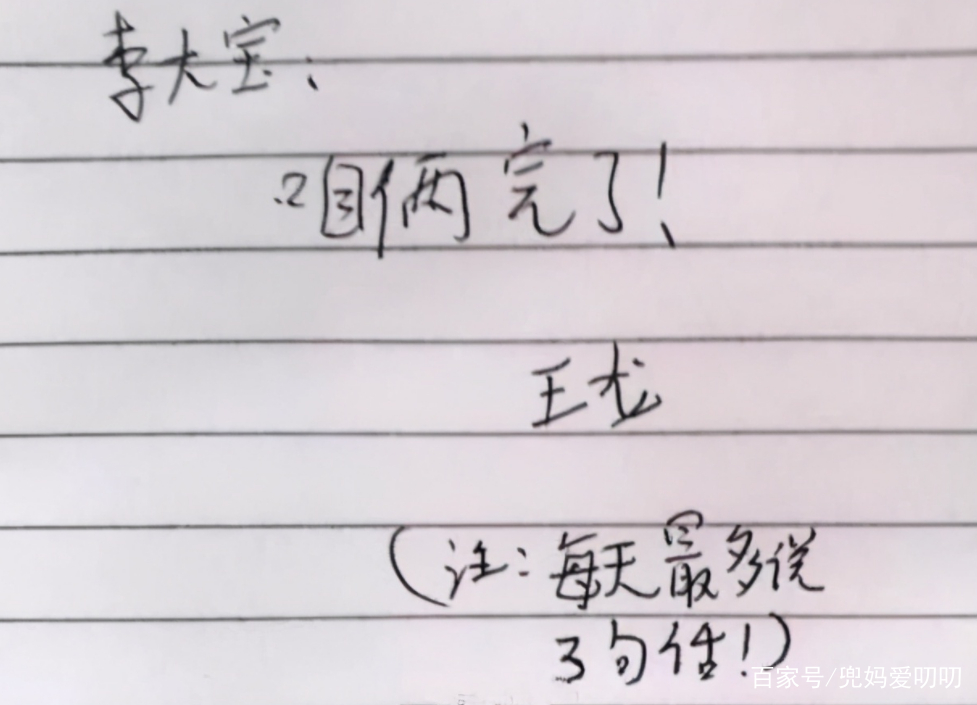 李大宝：
咱俩完了！
王龙
（注：每天最多说
3句话！）
百家号/兜妈爱叨叨